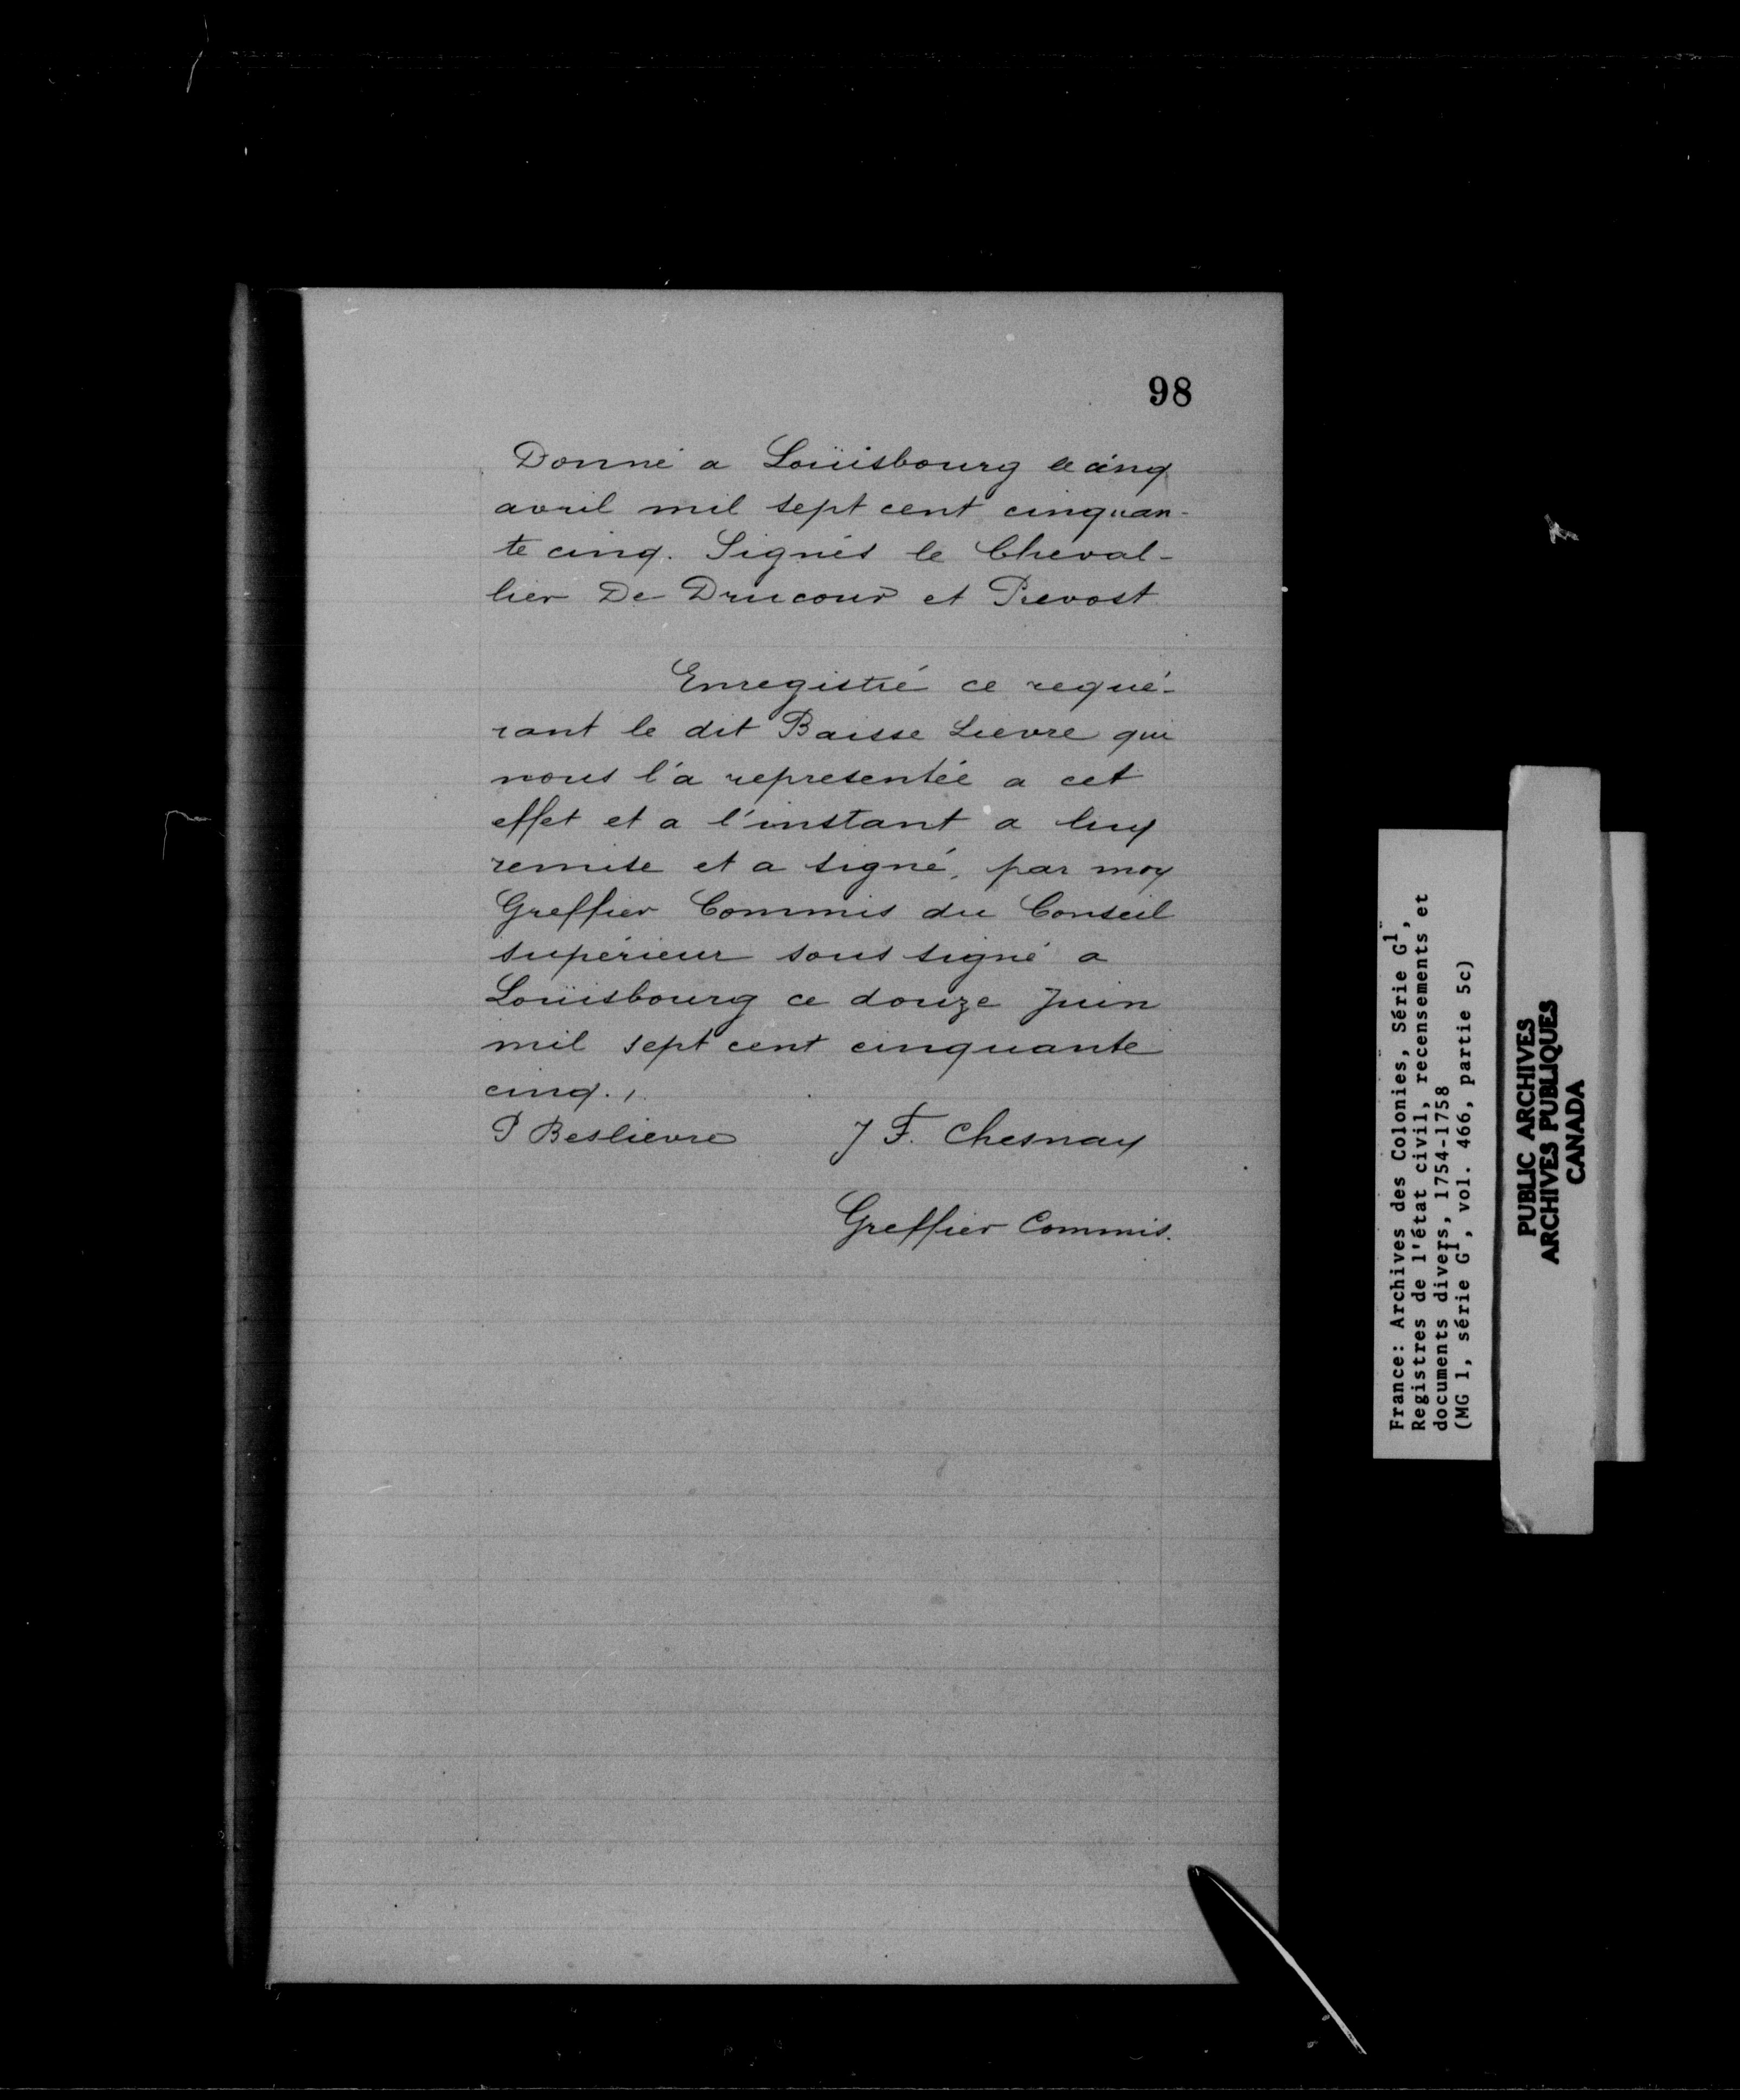 98
Donné a Loüisbourg le cinq
avril mil sept cent cinquan-
te cinq. Signés le Cheval-
lier De Drucour et Prevost
Enregistré ce requé-
rant le dit Baisse Lievre qui
nous l'a representée a cet
effet et a l'instant a luy
remise et a signé, par moy
Greffier Commis du Conseil
supérieur sous signé a
Loüisbourg ce douze Juin
mil sept cent cinquante
cinq.,
P Beslievre J F. Chesnay
Greffier Commis.
France: Archives des Colonies, Série G1,
Registres de l'état civil, recensements et
documents divers, 1754-1758
(MG 1, série G1, vol. 466, partie 5c)
PUBLIC ARCHIVES
ARCHIVES PUBLIQUES
CANADA